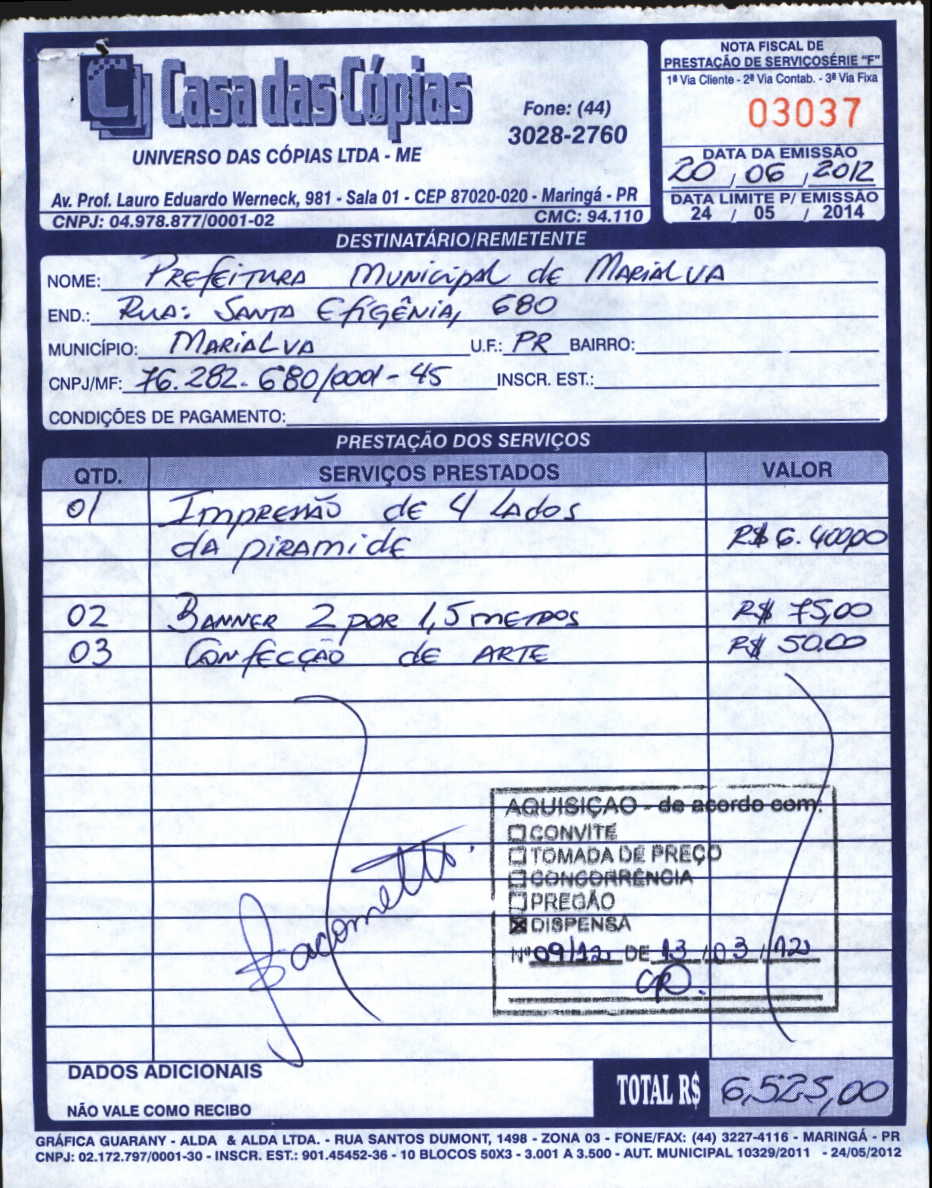 Casa das Cópias
Fone: (44)
3028-2760
UNIVERSO DAS CÓPIAS LTDA - ME
Av. Prof. Lauro Eduardo Werneck, 981 - Sala 01 - CEP 87020-020 - Maringá - PR
CNPJ: 04.978.877/0001-02 CMC: 94.110
NOTA FISCAL DE
PRESTAÇÃO DE SERVIÇOSÉRIE "F"
1ª Via Cliente - 2ª Via Contab. - 3ª Via Fixa
03037
DATA DA EMISSÃO
20 / 06 / 2012
DATA LIMITE P/ EMISSÃO
24 / 05 / 2014
DESTINATÁRIO/REMETENTE
NOME: Prefeitura Municipal de Marialva
END.: Rua: Santa Efigênia, 680
MUNICÍPIO: Marialva U.F.: PR BAIRRO:
CNPJ/MF: 76.282.680/0001-45 INSCR. EST.:
CONDIÇÕES DE PAGAMENTO:
PRESTAÇÃO DOS SERVIÇOS
QTD. SERVIÇOS PRESTADOS VALOR
01 Impressão de 4 lados
da piramide R$ 6.400,00
02 Banner 2 por 1,5 metros R$ 75,00
03 Confecção de arte R$ 50.00
AQUISIÇAO - de acordo com:
CONVITE
TOMADA DE PREÇO
CONCORRÊNCIA
PREGÃO
DISPENSA
Nº 09/12 DE 13 / 03 / 12
DADOS ADICIONAIS
NÃO VALE COMO RECIBO
TOTAL R$ 6,525,00
GRÁFICA GUARANY - ALDA & ALDA LTDA. - RUA SANTOS DUMONT, 1498 - ZONA 03 - FONE/FAX: (44) 3227-4116 - MARINGÁ - PR
CNPJ: 02.172.797/0001-30 - INSCR. EST.: 901.45452-36 - 10 BLOCOS 50X3 - 3.001 A 3.500 - AUT. MUNICIPAL 10329/2011 - 24/05/2012